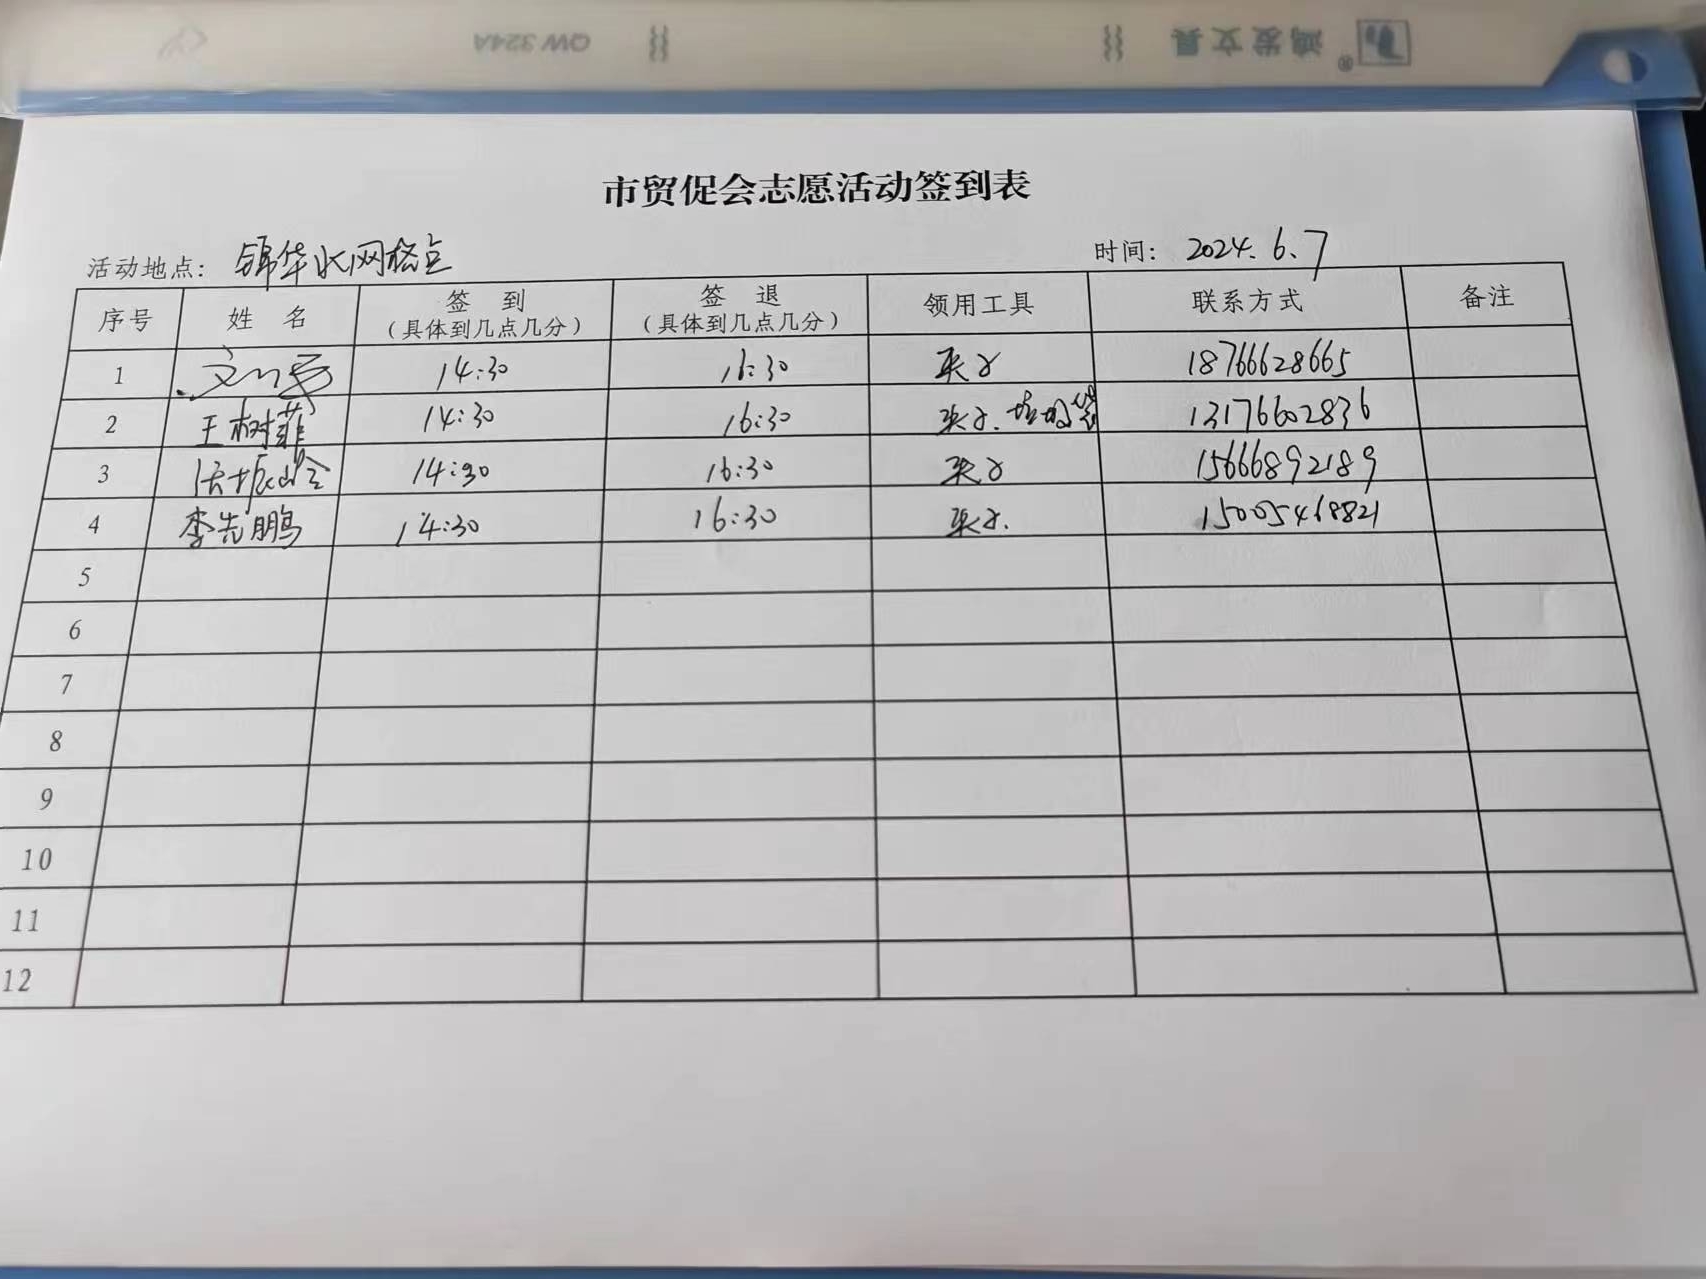 QW 324A
鸿发文具®
市贸促会志愿活动签到表
活动地点: 锦华北网格点 时间: 2024.6.7
序号 姓 名 签 到 (具体到几点几分) 签 退 (具体到几点几分) 领用工具 联系方式 备注
1 14:30 16:30 夹子 18766628665
2 王树菲 14:30 16:30 夹子.垃圾袋 13176602836
3 14:30 16:30 夹子 15666892189
4 李先鹏 14:30 16:30 夹子. 15005468821
5
6
7
8
9
10
11
12